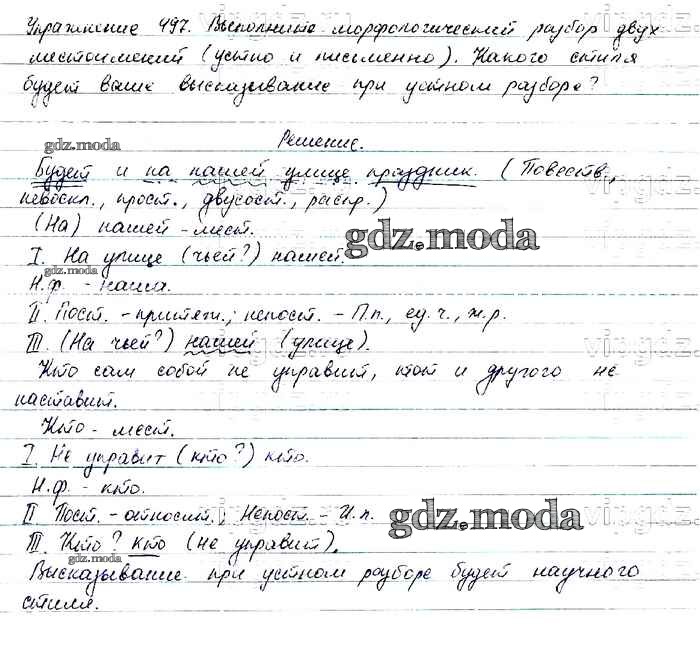 Упражнение 497. Выполните морфологический разбор двух
местоимений (устно и письменно). Какого стиля
будет ваше высказывание при устном разборе?
Решение.
gdz.moda
Будет и на нашей улице праздник. (Повеств.,
невоскл., прост., двусост., распр.)
(На) нашей - мест.
gdz.moda
I. На улице (чьей?) нашей.
gdz.moda
Н.ф. - наша.
II. Пост. - притяж.; непост. - П.п., ед.ч., ж.р.
III. (На чьей?) нашей (улице).
Кто сам собой не управит, тот и другого не
наставит.
Кто - мест.
I. Не управит (кто?) кто.
Н.ф. - кто.
II Пост. - относит.; Непост. - И.п.
gdz.moda
III. Кто? кто (не управит).
gdz.moda
Высказывание при устном разборе будет научного
стиля.